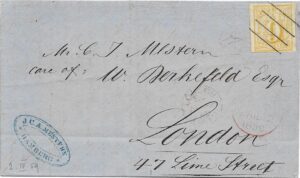 Mr. C. J. Mestern
care of: W. Berkefeld Esqr
London
47 Lime Street
J.C.A. MESTERN
HAMBURG